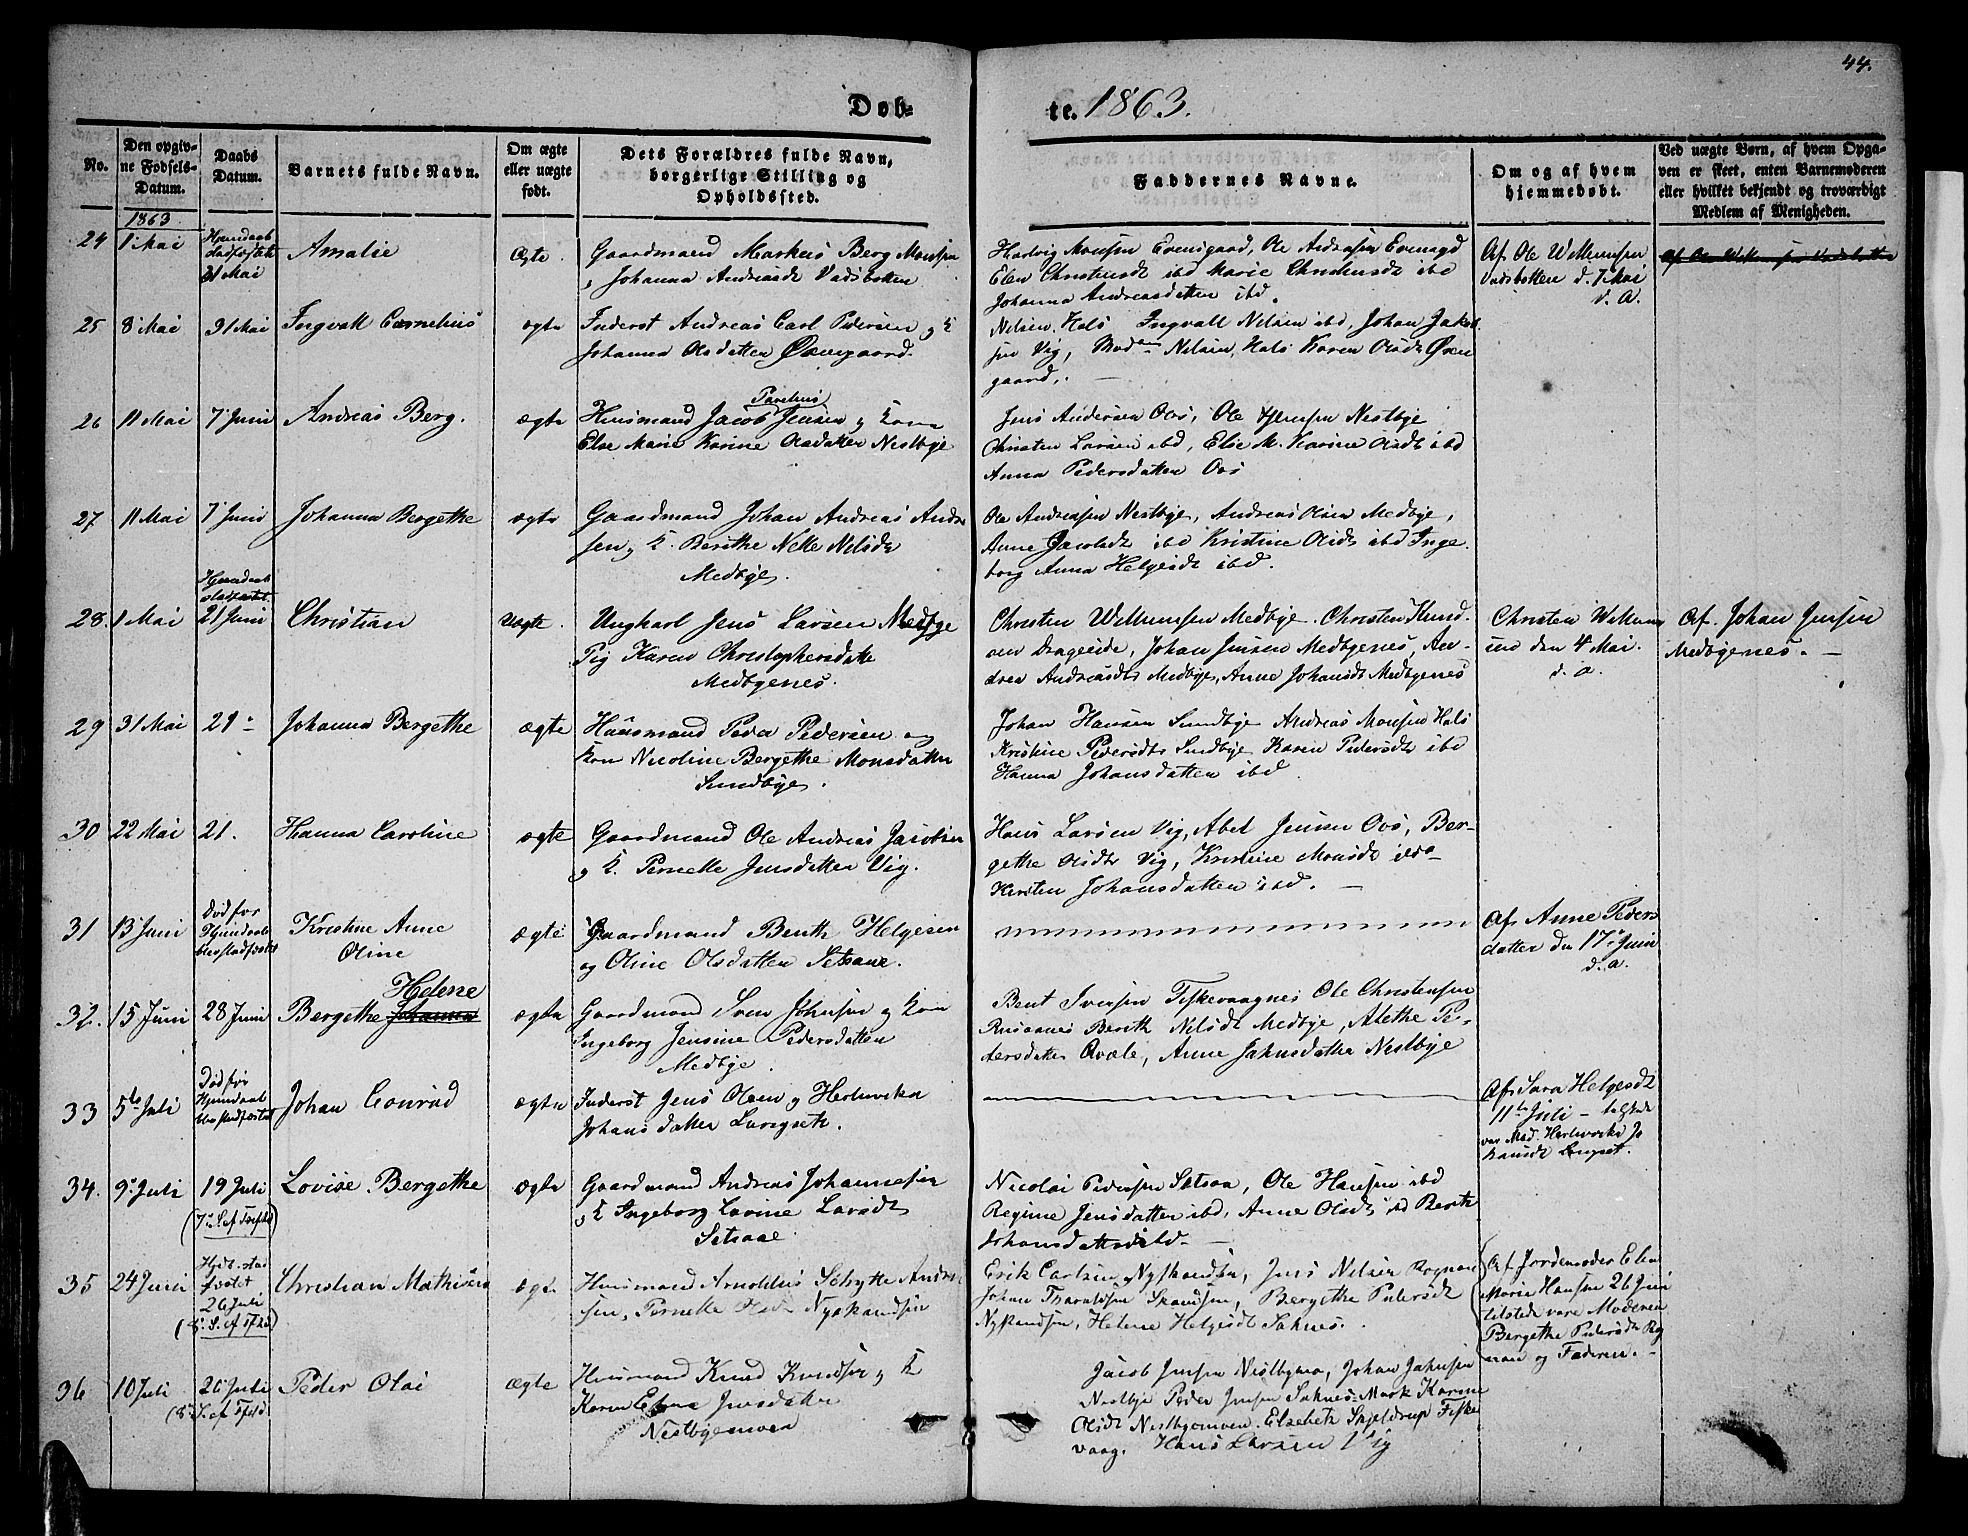 44.
Døb-
te. 1863.
No.
Den opgiv-
ne Fødsels-
Datum.
Daabs
Datum.
Barnets fulde Navn.
Om ægte
eller uægte
født.
Dets Forældres fulde Navn,
borgerlige Stilling og
Opholdssted.
Faddernes Navne.
Om og af hvem
hjemmedøbt.
Ved uægte Børn, af hvem Opga-
ven er skeet, enten Barnemoderen
eller hvilket bekjendt og troværdigt
Medlem af Menigheden.
1863
24 1 Mai Hjemdaab
stadfæstet
31 Mai
Amalie
Ægte.
Gaardmand Markus Berg Monsen
Johanna Andreasdt Vadsbotten
Hartvig Monsen Evensgaard, Ole Andreasen Evensgd
Elen Christensdt ibd Marie Christensdt ibd
Johanna Andreasdatten ibd.
Af Ole Willumsen
Vadsbotten d. 7 Mai
d. A.
25 8 Mai 31 Mai Ingvall Cornelius
ægte
Inderst Andreas Carl Pedersen og K
Johanna Olsdatten Øvregaard.
Nilsen Hals Ingvall Nilsen ibd, Johan Jakob
sen Vig, Nilsen Hals Karen Olsdt Øvre
gaard.
26 11 Mai 7 Juni Andreas Berg.
ægte
Huusmand Jacob Parelius Jensen og Kone
Else Marie Karine Olsdatter Nestbye
Jens Andersen Oos, Ole Jensen Nestbye
Christen Larsen ibd, Else M. Karine Olsdt ibd
Anna Pedersdatten Oos
27 11 Mai 7 Juni Johanna Bergethe
ægte
Gaardmand Johan Andreas Andre
sen og K. Berithe Nille Nilsdt
Medbye.
Ole Andreasen Nestbye, Andreas Olsen Medbye,
Anne Jacobsdt ibd Kristine Olsdt ibd Inge
borg Anna Helgesdt ibd.
28. 1 Mai Hjemdaab
stadfæstet
21 Juni
Christian
Uægte.
Ungkarl Jens Larsen Medbye
Pig Karen Christophersdatte
Medbyenes.
Christen Willumsen Medbye. Christen Knud-
sen Drageide, Johan Jensen Medbyenes, An-
drea Andreasdt Medbye, Anne Johansdt Medbyenes
Christen Willum
sen den 4 Mai.
d. a.
Af. Johan Jensen
Medbyenes. —
29 31 Mai 21 - Johanna Bergethe
ægte
Huusmand Peder Pedersen og
Kone Nicoline Bergethe Monsdatter
Sundbye.
Johan Hansen Sundbye Andreas Monsen Hals
Kristine Pedersdt Sundbye Karen Pedersdt ibd
Hanna Johansdatten ibd.
30 22 Mai 21. Hanna Caroline
ægte
Gaardmand Ole Andreas Jacobsen
og K. Pernelle Jensdatten Vig.
Hans Larsen Vig, Abel Jensen Oos, Ber-
gethe Olsdt Vig, Kristine Monsdt ibd
Kersten Johansdatten ibd. —
31 13 Juni Død før
Hjemdaab
blev stadfæstet
Kristine Anne
Oline
ægte
Gaardmand Benth Helgesen
og Oline Olsdatten Setsaae.
Af Anne Peders
datter den 17 Juni
d. a.
32. 15 Juni 28 Juni Bergethe Helene Johanna
ægte
Gaardmand Sven Johnsen og Kone
Ingeborg Jensine Pedersdatten
Medbye.
Bent Iversen Fiskevaagnes Ole Christensen
Rusaanes Berith Nilsdt Medbye, Alethe Pe-
dersdatter Qvæle, Anne Jahnsdatter Nestbye
33 5te Juli Død før
Hjemdaab
blev stadfæstet
Johan Conrad
ægte
Inderst Jens Olsen og Herlaveka
Johansdatten
Af Sara Helgesdt
11te Juli —
var Mod. Jo
hansdt
34. 9 Juli 19 Juli
(7 S. ef Trefh)
Lovise Bergethe
ægte
Gaardmand Andreas Johannesen
og K Ingeborg Lavine Larsdt
Setsaae.
Nicolai Pedersen Setsaa, Ole Hansen ibd
Regine Jensdatter ibd, Anne Olsdt ibd Berith
Johansdatter ibd —
35 24 Juni Hjdb. stad
fæstet
26 Juli
(8 S. ef Tfhd)
Christian Mathisen
ægte
Huusmand Arnoldus Schytte Andre
sen, Pernelle Olsdt
Erik Carlsen Jens Nilsen Rognan
Johan Bergethe Pedersdt
Helene Helgesdt Saknes.
Af Jordemoder Elen
Marie Hansen 26 Juni
tilstede vare Moderen
Bergethe Pedersdt Rog
nan og Faderen. —
36 10 Juli 26 Juli
(8 S. ef Tfhd)
Peder Olai
ægte
Huusmand Knud Knudsen og K
Karen Elena Jensdatter
Nestbyemoen
Jacob Jensen Nestbymo, Johan Jahnsen
Nestbye Peder Jensen Saknes Mark Karine
Olsdt Nestbyemoen. Elsebeth Skjeldrup Fiske
vaag. Hans Larsen Vig